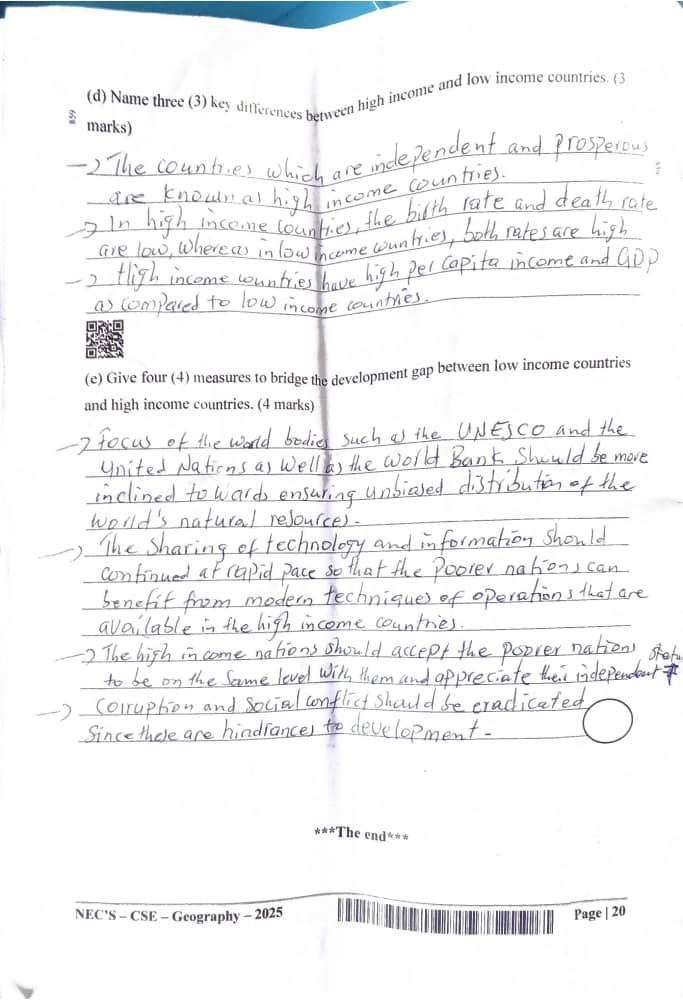 (d) Name three (3) key differences between high income and low income countries. (3
marks)
→ The countries which are independent and prosperous
are known as high income countries.
→ In high income countries, the birth rate and death rate
are low, whereas in low income countries, both rates are high
→ High income countries have high per capita income and GDP
as compared to low income countries.
(e) Give four (4) measures to bridge the development gap between low income countries
and high income countries. (4 marks)
→ Focus of the world bodies such as the UNESCO and the
United Nations as well as the World Bank should be more
inclined towards ensuring unbiased distribution of the
world's natural resources.
→ The sharing of technology and information should
continued at rapid pace so that the poorer nations can
benefit from modern techniques of operations that are
available in the high income countries.
→ The high income nations should accept the poorer nations
to be on the same level with them and appreciate their independent
→ Corruption and social conflict should be eradicated
Since these are hindrances to development.
***The end***
NEC'S – CSE – Geography – 2025
Page | 20